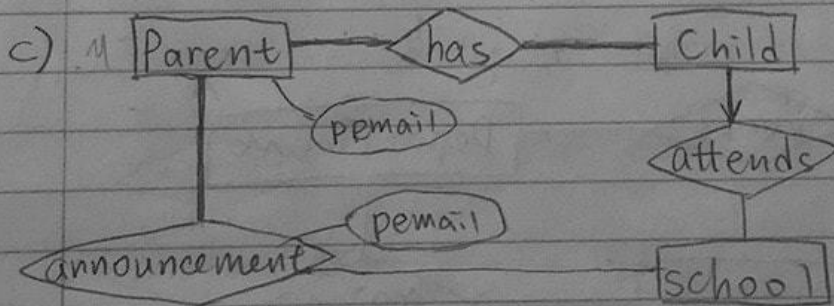 c) Parent has Child
pemail
attends
pemail
announcement
school